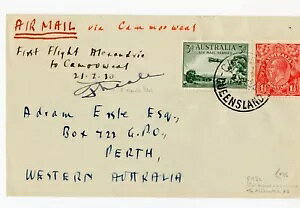 AIR MAIL via Camooweal
First Flight Alexandria
to Camooweal
21.2.30
3d AUSTRALIA 3d
AIR MAIL SERVICE
QUEENSLAND
Adram Essle Esq.,
Box 723 G.P.O.,
PERTH,
WESTERN AUSTRALIA